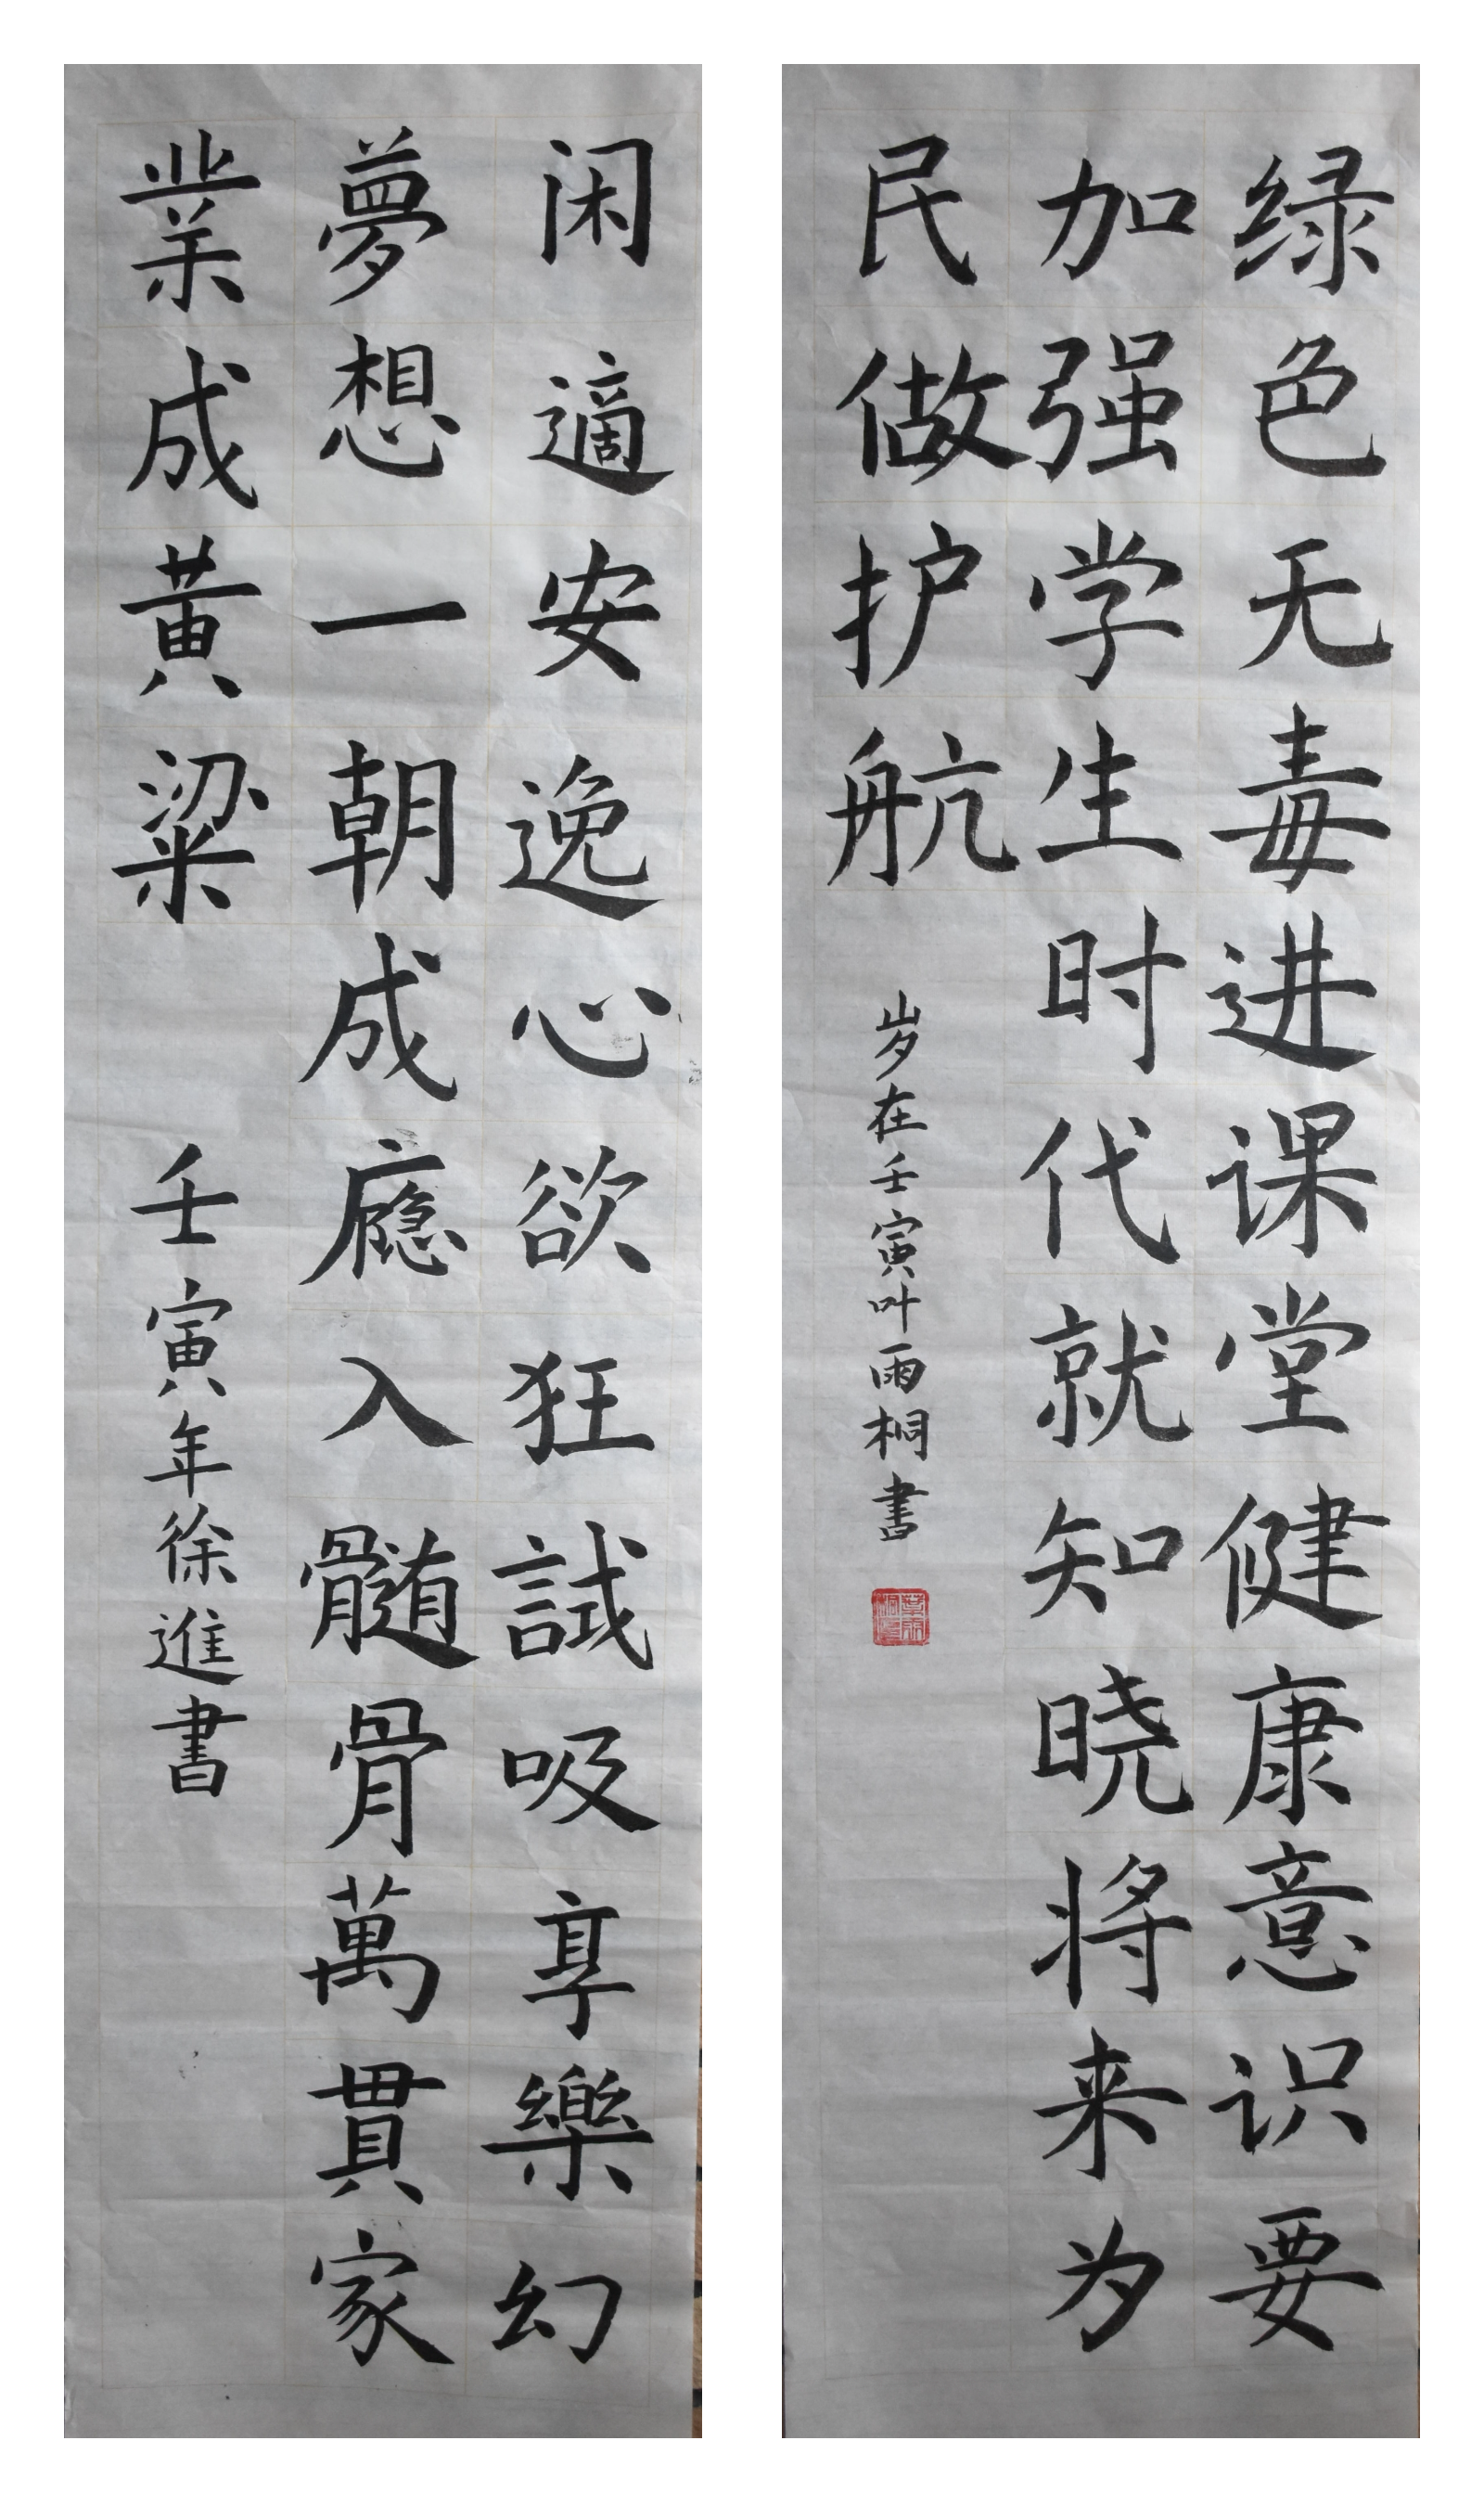 绿色无毒进课堂健康意识要
加强学生时代就知晓将来为
民做护航
岁在壬寅叶雨桐书
闲適安逸心欲狂試吸享樂幻
夢想一朝成瘾入髓骨萬貫家
業成黄粱
壬寅年徐進書